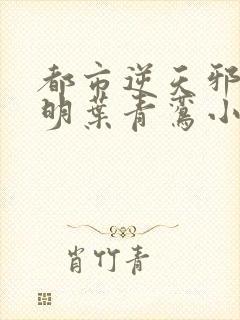 都市逆天邪
明葉青鸞小
肖竹青